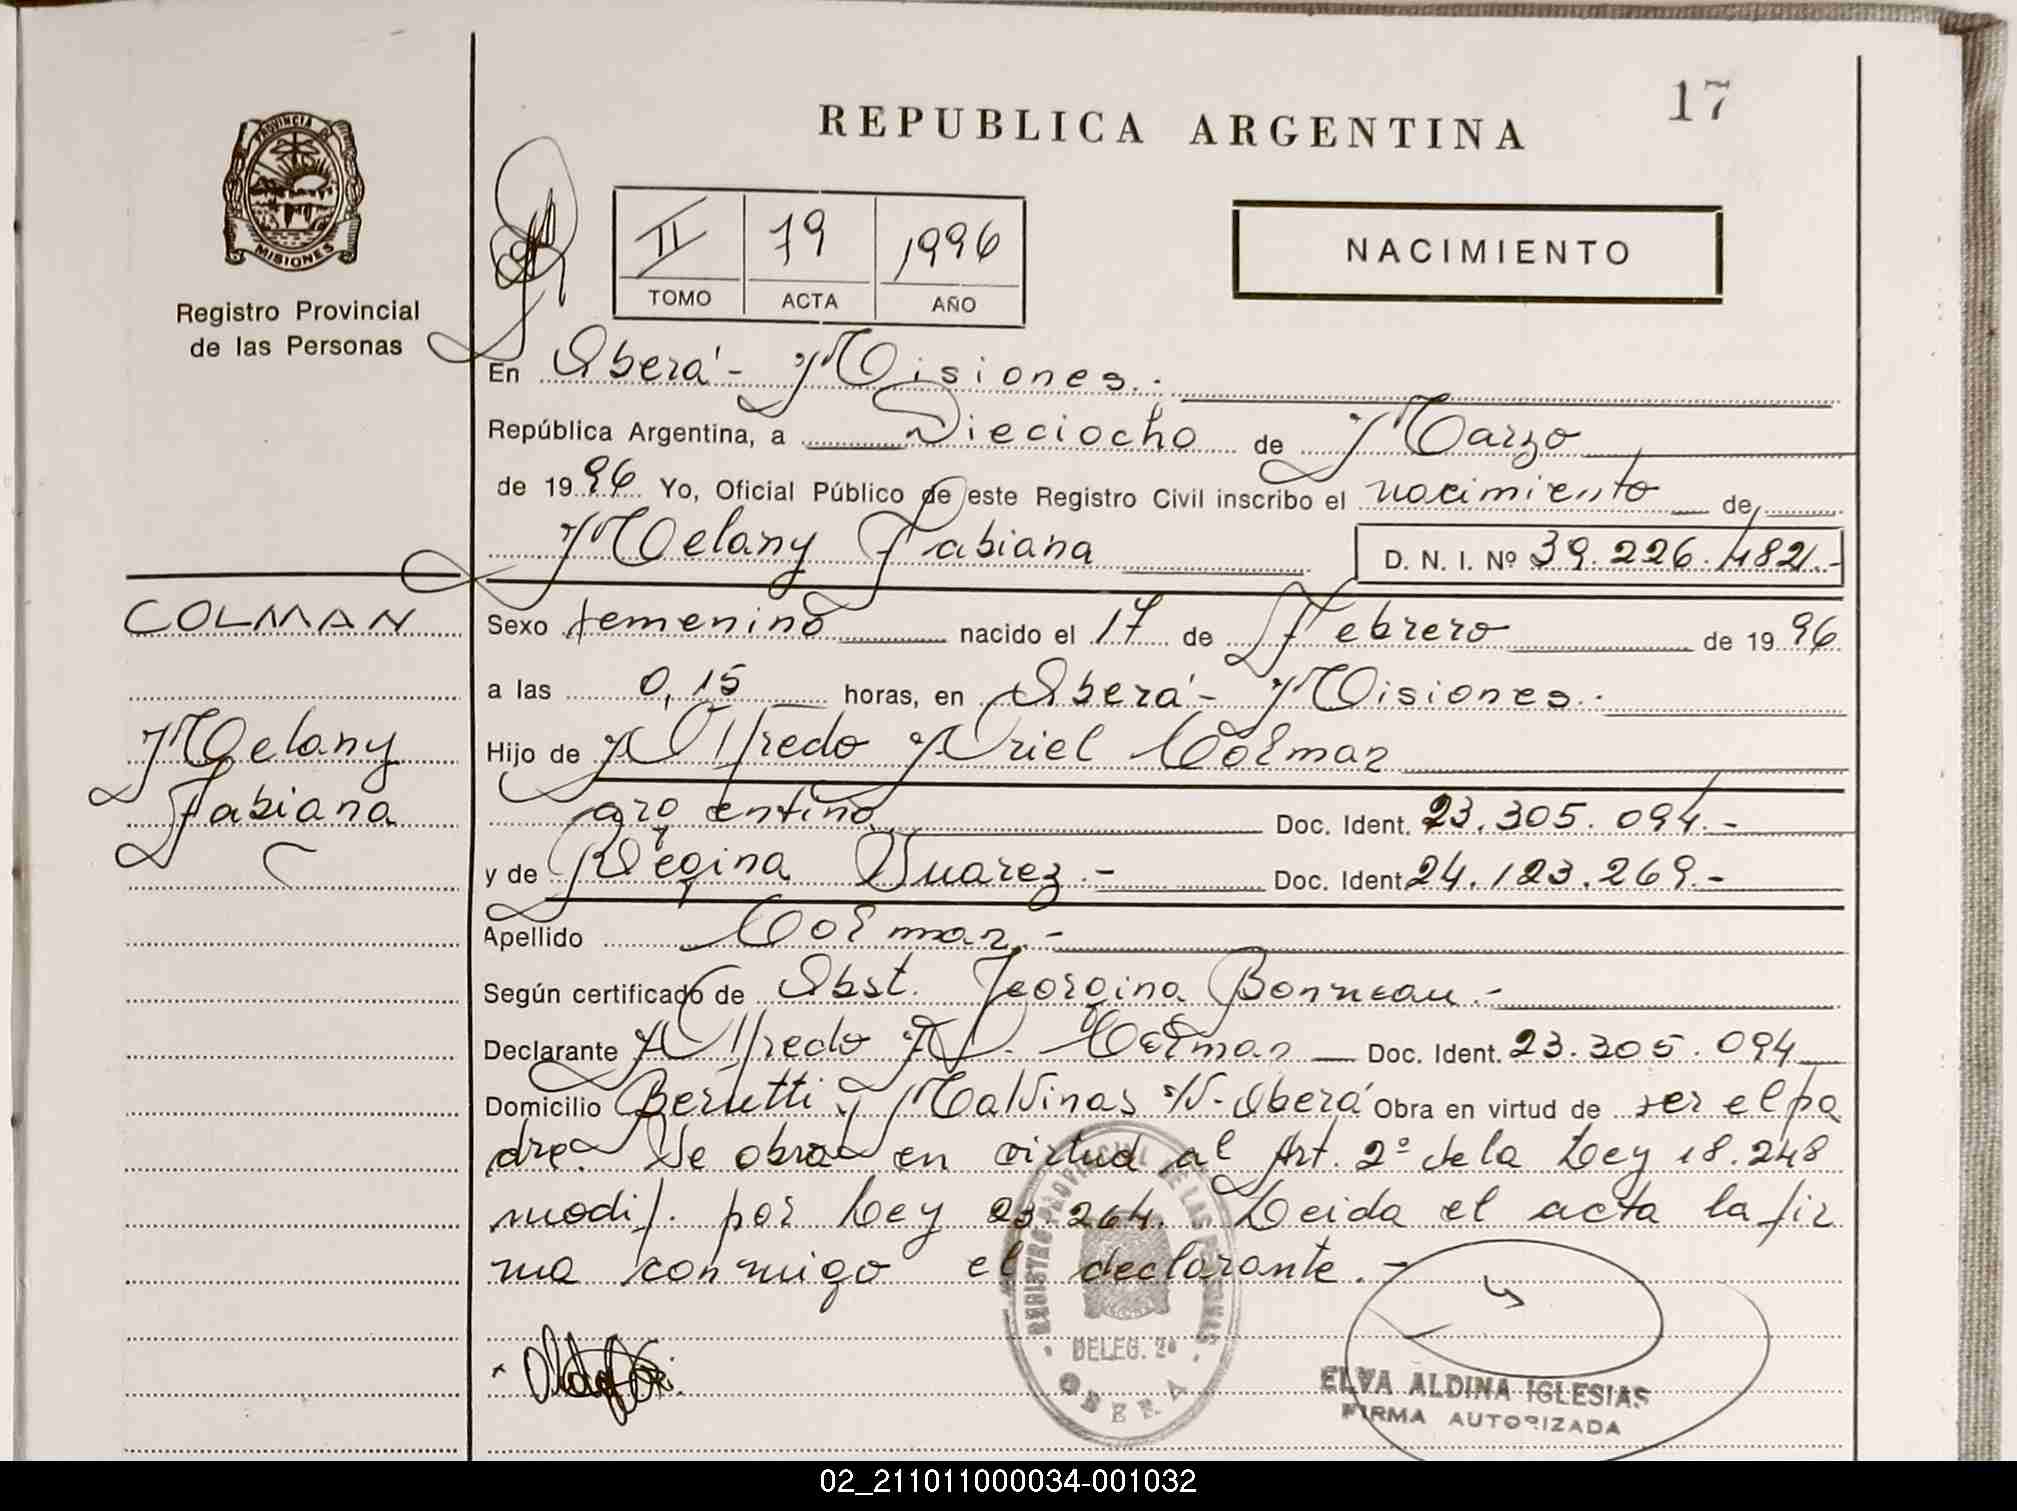 17
REPUBLICA ARGENTINA
PROVINCIA DE
MISIONES
Registro Provincial
de las Personas
II 79 1996
TOMO ACTA AÑO
NACIMIENTO
En Oberá - Misiones.-
República Argentina, a Dieciocho de Marzo
de 1996 Yo, Oficial Público de este Registro Civil inscribo el nacimiento de
Melany Fabiana D. N. I. Nº 39.226.482.-
COLMAN
Melany
Fabiana
Sexo femenino nacido el 17 de Febrero de 1996
a las 0,15 horas, en Oberá - Misiones.-
Hijo de Alfredo Ariel Colman
argentino Doc. Ident. 23.305.094.-
y de Regina Suarez.- Doc. Ident. 24.123.269.-
Apellido Colman.-
Según certificado de Obst. Georgina Bonneau.-
Declarante Alfredo A. Colman Doc. Ident. 23.305.094
Domicilio Berutti y Malvinas S/N - Oberá Obra en virtud de ser el pa
dre. Se obra en virtud al Art. 2º de la Ley 18.248
modif. por Ley 23.264. Leida el acta la fir
ma conmigo el declarante.-
REGISTRO PROVINCIAL DE LAS PERSONAS
DELEG. 2ª
OBERA
ELVA ALDINA IGLESIAS
FIRMA AUTORIZADA
02_211011000034-001032